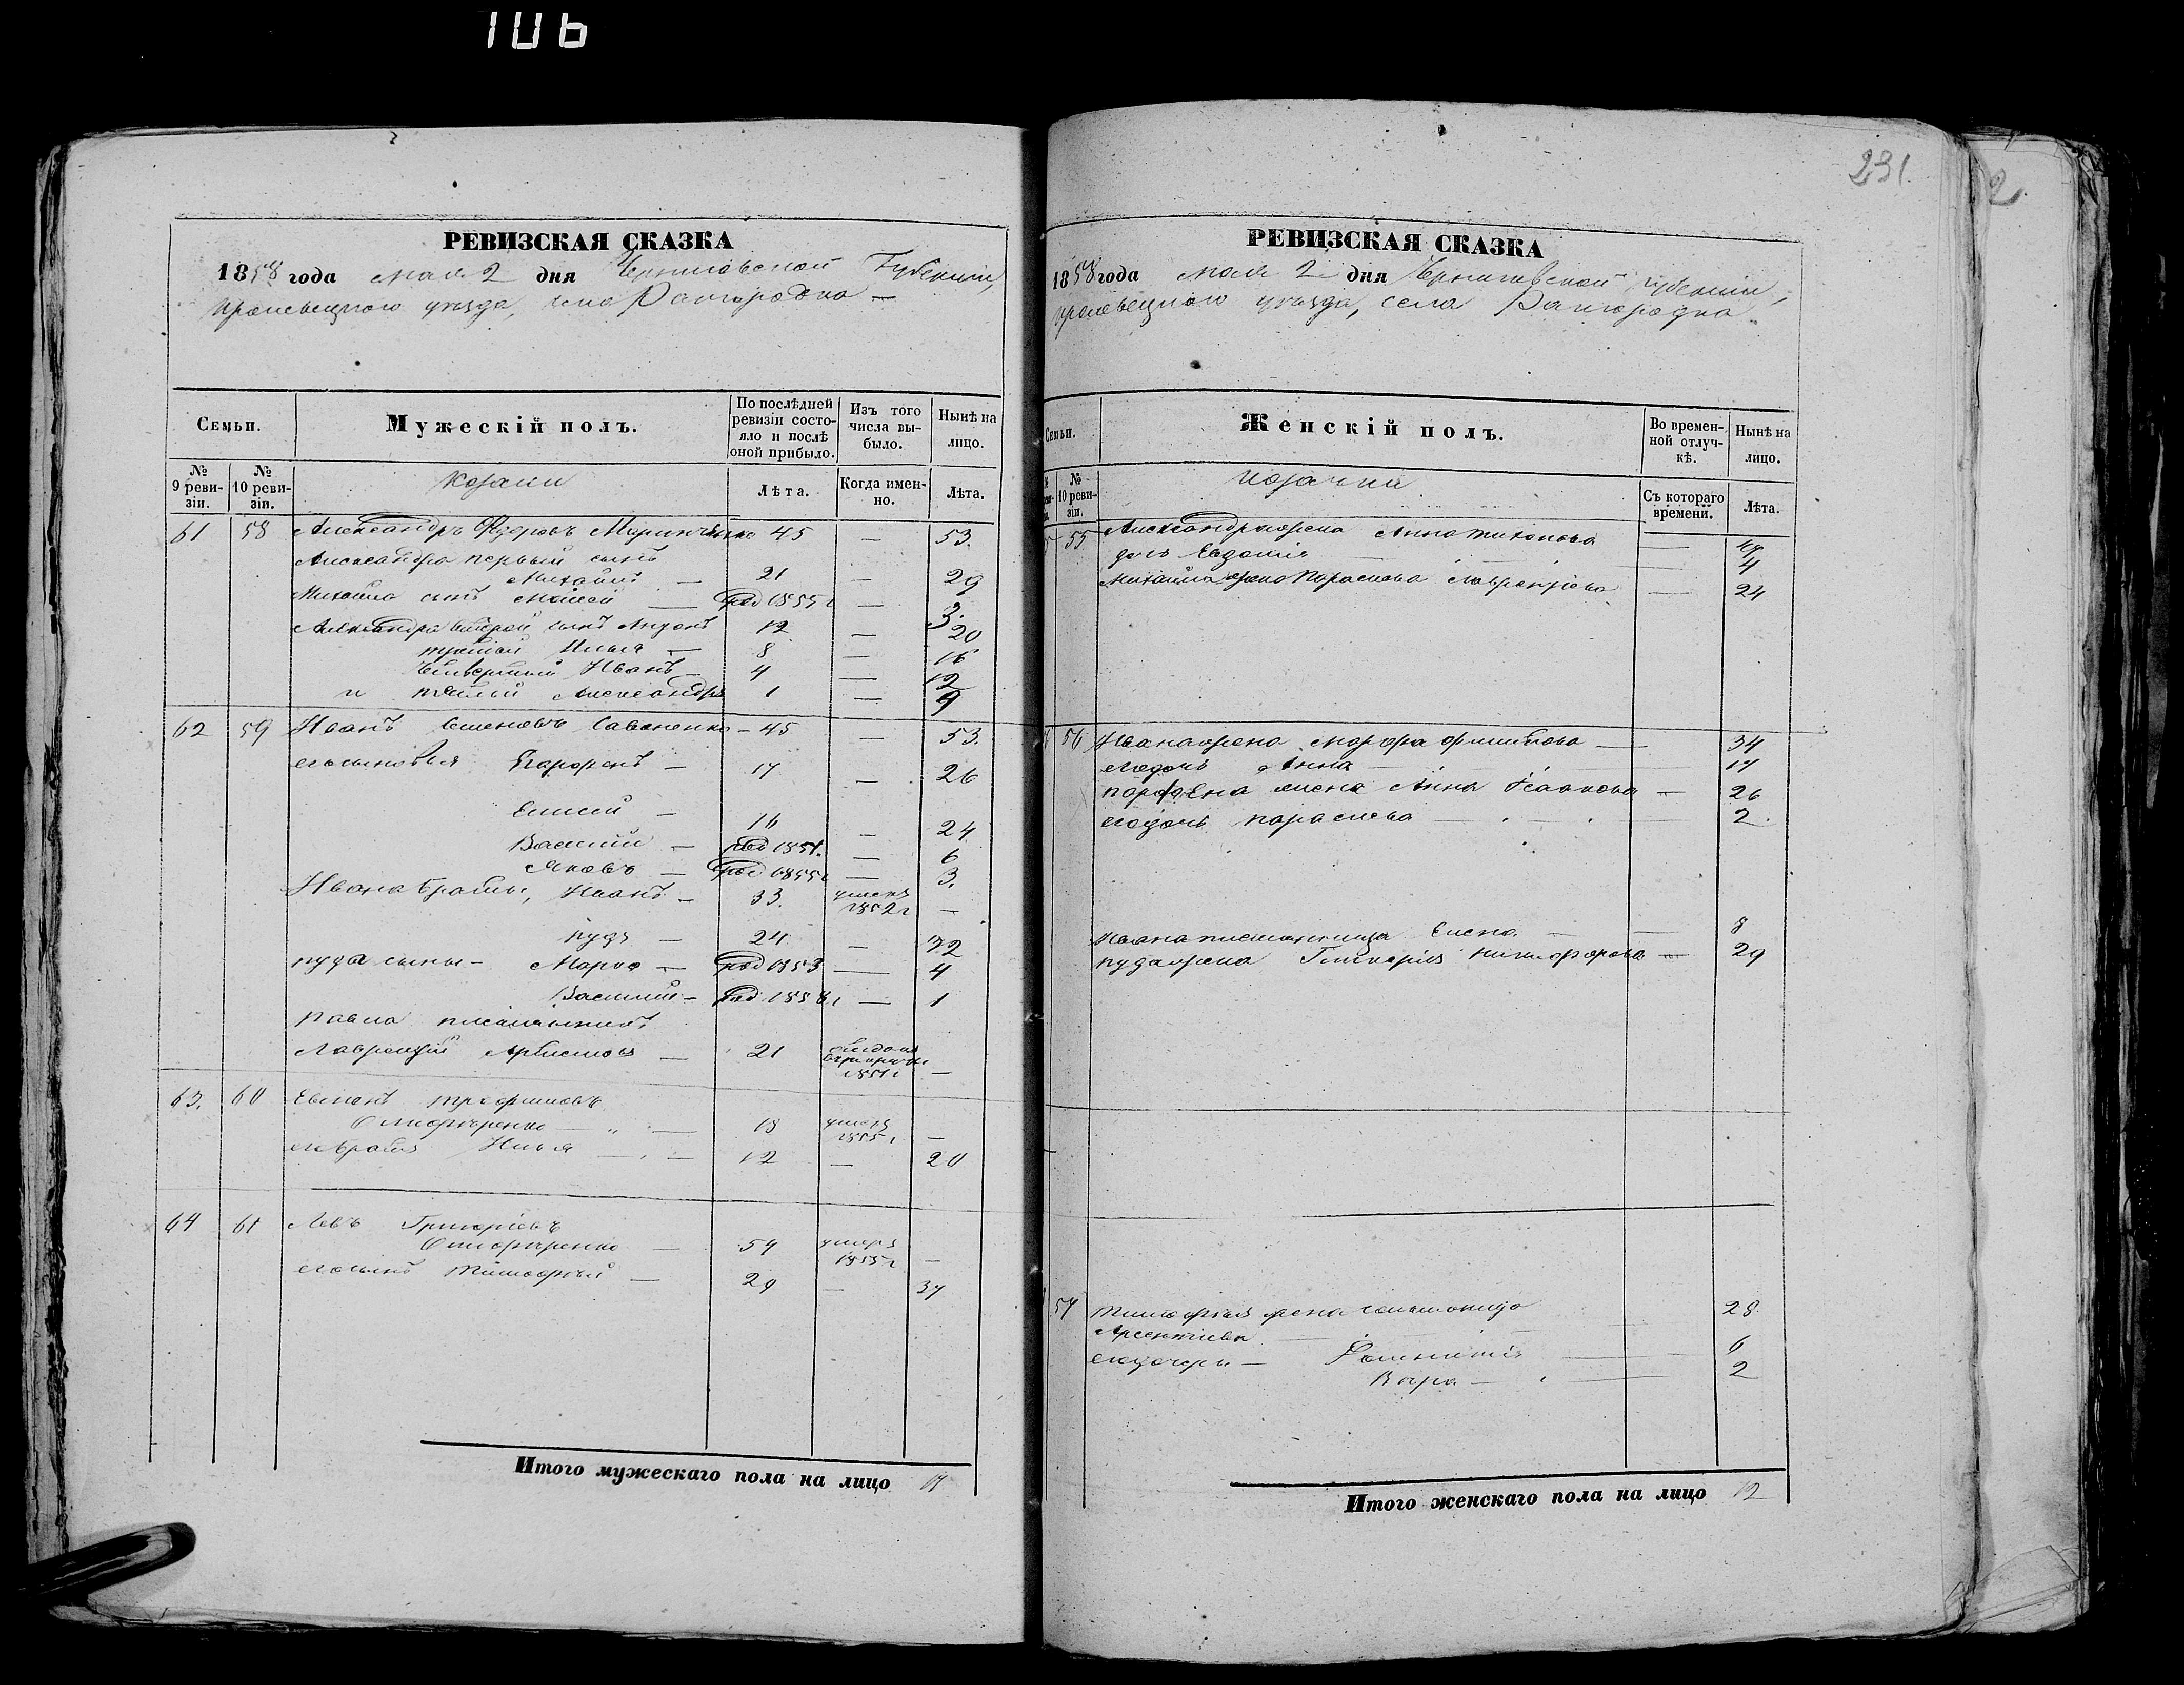 106
231
2
РЕВИЗСКАЯ СКАЗКА
1858 года мая 2 дня Черниговской Губерніи,
Кролевецкого уезда, села Райгородка —
Семьи.
Мужескій полъ.
По послѣдней ревизіи состояло и послѣ оной прибыло.
Изъ того числа выбыло.
Нынѣ на лицо.
№ 9 ревизіи.
№ 10 ревизіи.
Козаки
Лѣта.
Когда именно.
Лѣта.
61 58 Александръ Федоровъ 45 — 53.
Александра первый сынъ
Михаилъ — 21 — 29
Михайла сынъ Моисей — род 1855 г — 3.
Александра второй сынъ Антонъ 12 — 20
третий Илья — 8 — 16
четвертый Иванъ — 4 — 12
и пятый Александръ 1 — 9
62 59 Иванъ Семеновъ Савоненко — 45 — 53.
его сыновья Парфенъ — 17 — 26
Елисей — 16 — 24
Василий — род 1851. — 6
Яковъ — род 1855 г — 3.
Ивана братья, Иванъ — 33. умеръ 1852 г —
Пудъ — 24 — 32
Пуда сыны — Марко — род 1853 — 4
Василий — род 1858 г — 1
Павла племянникъ
Лаврентий — 21 1851 г —
63. 60 Трофимовъ
Олиференко — „ — 18 умеръ 1855 г —
его братъ Илья — 12 — 20
64 61 Левъ Григориевъ
Олиференко — 59 умеръ 1855 г —
его сынъ Тимофей — 29 — 37
Итого мужескаго пола на лицо 17
РЕВИЗСКАЯ СКАЗКА
1858 года мая 2 дня Черниговской Губерніи,
Кролевецкого уезда, села Райгородка
Семьи.
Женскій полъ.
Во временной отлучкѣ.
Нынѣ на лицо.
№ 10 ревизіи.
Козачки
Съ котораго времени.
Лѣта.
55 Александра жена Анна Тихонова —
дочь Евдокия — 4
Михайла жена Параскева Лаврентиева — 24
56 Ивана жена Марфа Филипова — 34
его дочь Анна — 17
Парфена жена Анна Исакова — 26
его дочь Параскева — 2.
Ивана племянница Елена — 8
Пуда жена Гликерия Никифорова — 29
57 Тимофея жена
Арсентиева — 28
его дочери — 6
Вера — 2
Итого женскаго пола на лицо 12